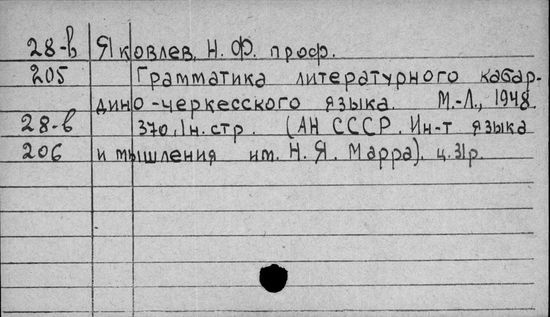 28-в Яковлев, Н. Ф. проф.
205 Грамматика литературного кабар-
дино-черкесского языка. М.-Л., 1948.
28-в 370, 1 н. стр. (АН СССР. Ин-т языка
206 и мышления им. Н. Я. Марра). ц. 31р.